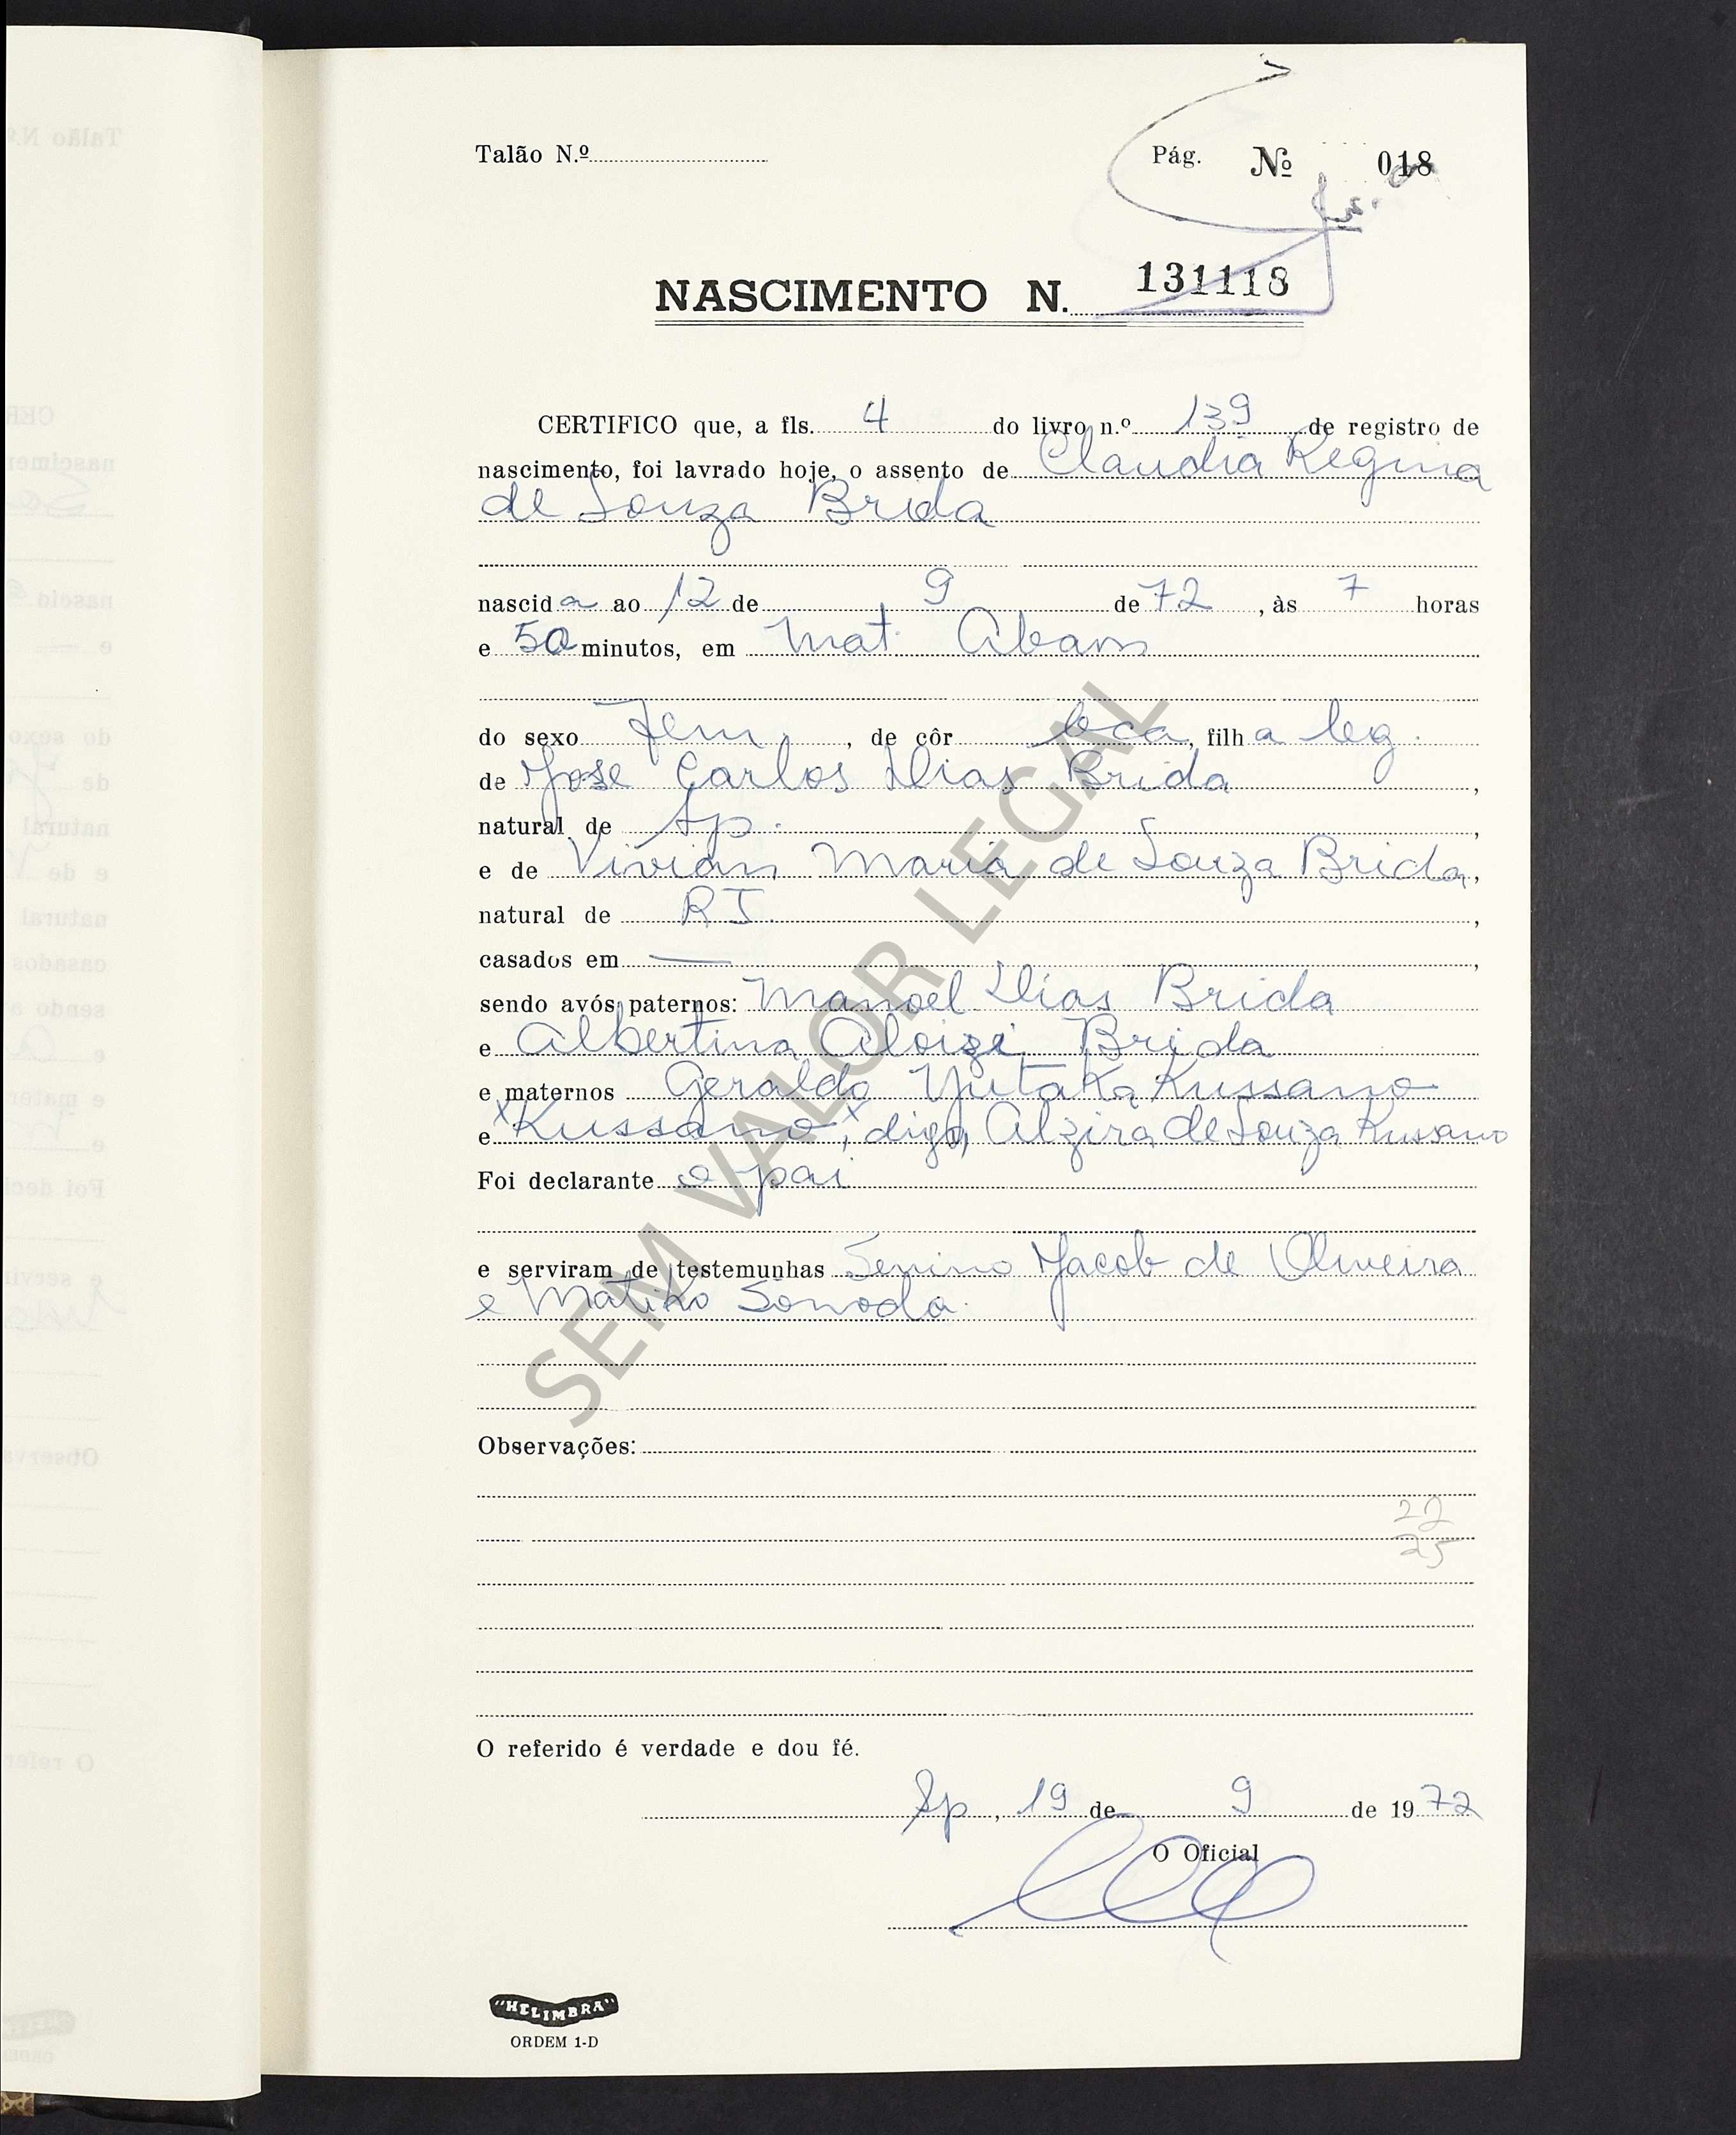 Talão N.º
Pág. Nº 018
NASCIMENTO N. 131118
CERTIFICO que, a fls. 4 do livro n.º 139 de registro de
nascimento, foi lavrado hoje, o assento de Claudia Regina
de Souza Brida
nascida ao 12 de 9 de 72, às 7 horas
e 50 minutos, em Mat.
do sexo Fem., de côr bca, filha leg.
de José Carlos Dias Brida,
natural de Sp.
e de Vivian Maria de Souza Brida,
natural de RJ.,
casados em —,
sendo avós paternos: Manoel Dias Brida
e Albertina Aloizi Brida
e maternos Geraldo Yutaka Kussano
e Kussano, digo, Alzira de Souza Kussano
Foi declarante o pai
e serviram de testemunhas Jacob de Oliveira
e Matiko Sonoda.
Observações:
22
25
O referido é verdade e dou fé.
Sp, 19 de 9 de 1972
O Oficial
"HELIMBRA"
ORDEM 1-D
SEM VALOR LEGAL